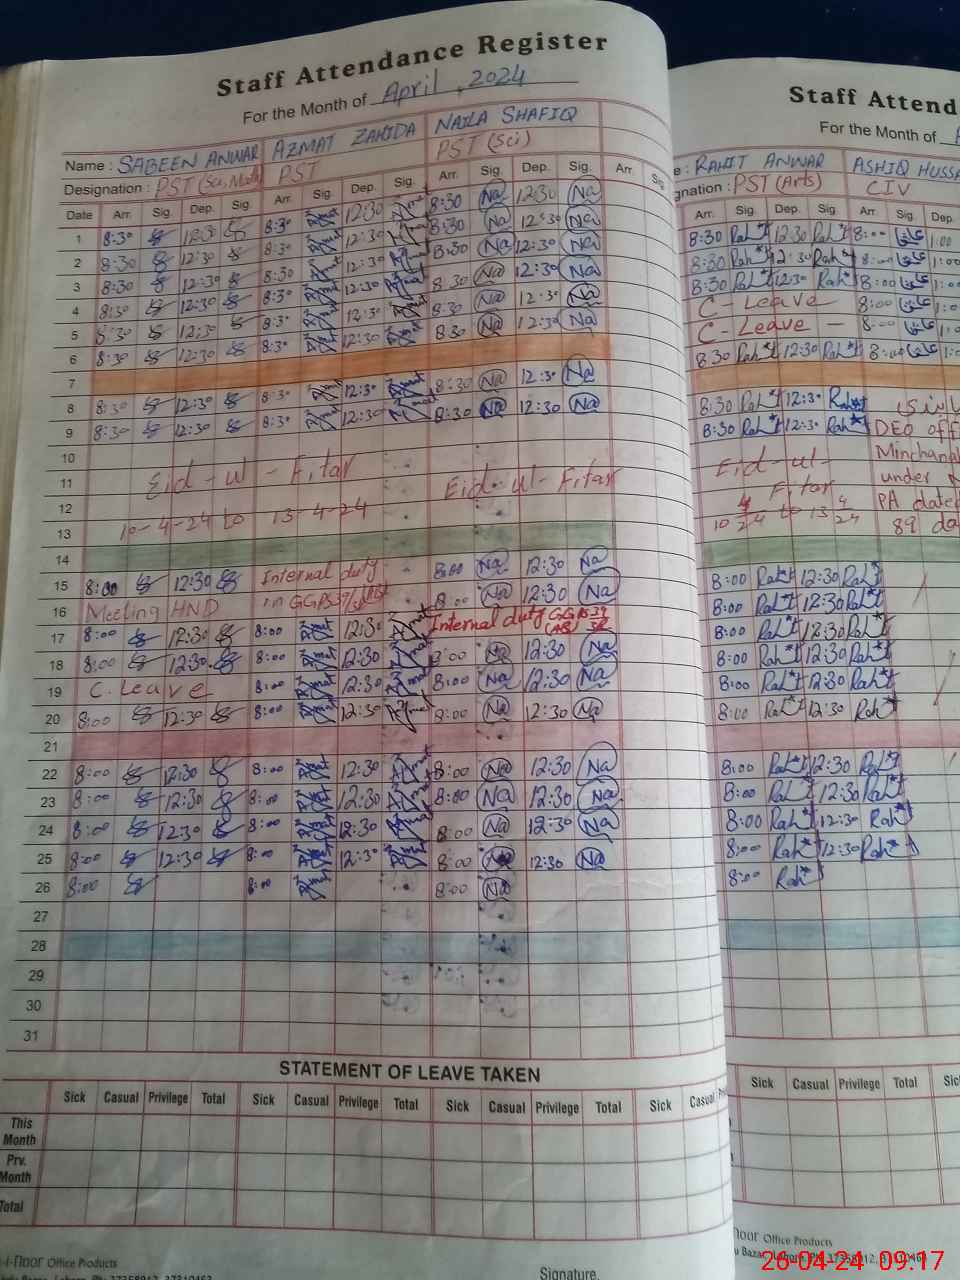 Staff Attendance Register
For the Month of April, 2024
Name : SABEEN ANWAR AZMAT ZAHIDA NAILA SHAFIQ
Designation : PST (Sci, Math) PST PST (Sci)
Date Arr. Sig. Dep. Sig. Arr. Sig. Dep. Sig. Arr. Sig. Dep. Sig. Arr. Sig
1 8:30 12:30 8:30 12:30 8:30 Na 12:30 Na
2 8:30 12:30 8:30 12:30 8:30 Na 12:30 Na
3 8:30 12:30 8:30 12:30 8:30 Na 12:30 Na
4 8:30 12:30 8:30 12:30 8:30 Na 12:30 Na
5 8:30 12:30 8:30 12:30 8:30 Na 12:30 Na
6 8:30 12:30 8:30 12:30 8:30 Na 12:30 Na
7
8 8:30 12:30 8:30 12:30 8:30 Na 12:30 Na
9 8:30 12:30 8:30 12:30 8:30 Na 12:30 Na
10
11 Eid-ul-Fitar Eid-ul-Fitar
12
13 10-4-24 to 13-4-24
14
15 8:00 12:30 Internal duty 8:00 Na 12:30 Na
16 Meeting HND in 8:00 Na 12:30 Na
17 8:00 12:30 8:00 12:30 Internal duty
18 8:00 12:30 8:00 12:30 8:00 Na 12:30 Na
19 C. Leave 8:00 12:30 8:00 Na 12:30 Na
20 8:00 12:30 8:00 12:30 8:00 Na 12:30 Na
21
22 8:00 12:30 8:00 12:30 8:00 Na 12:30 Na
23 8:00 12:30 8:00 12:30 8:00 Na 12:30 Na
24 8:00 12:30 8:00 12:30 8:00 Na 12:30 Na
25 8:00 12:30 8:00 12:30 8:00 Na 12:30 Na
26 8:00 8:00 8:00 Na
27
28
29
30
31
STATEMENT OF LEAVE TAKEN
Sick Casual Privilege Total Sick Casual Privilege Total Sick Casual Privilege Total Sick Casual
This Month
Prv. Month
Total
Office Products
Signature.
Staff Attend
For the Month of
RAHIT ANWAR ASHIQ HUSSA
gnation : PST (Arts) CIV
Arr. Sig. Dep. Sig. Arr. Sig. Dep.
8:30 Rah 12:30 Rah 8:00 1:00
8:30 Rah 12:30 Rah 8:00 1:00
8:30 Rah 12:30 Rah 8:00 1:0
C-Leave 8:00 1:0
C-Leave 8:00 1:0
8:30 Rah 12:30 Rah 8:00 1:0
8:30 Rah 12:30 Rah
8:30 Rah 12:30 Rah DEO off
Eid-ul- Minchana
Fitar under
10 4/24 to 13 4/24 PA dated
89 da
8:00 Rah 12:30 Rah
8:00 Rah 12:30 Rah
8:00 Rah 12:30 Rah
8:00 Rah 12:30 Rah
8:00 Rah 12:30 Rah
8:00 Rah 12:30 Rah
8:00 Rah 12:30 Rah
8:00 Rah 12:30 Rah
8:00 Rah 12:30 Rah
8:00 Rah 12:30 Rah
8:00 Rah
Sick Casual Privilege Total Sic
Office Products
26-04-24 09:17